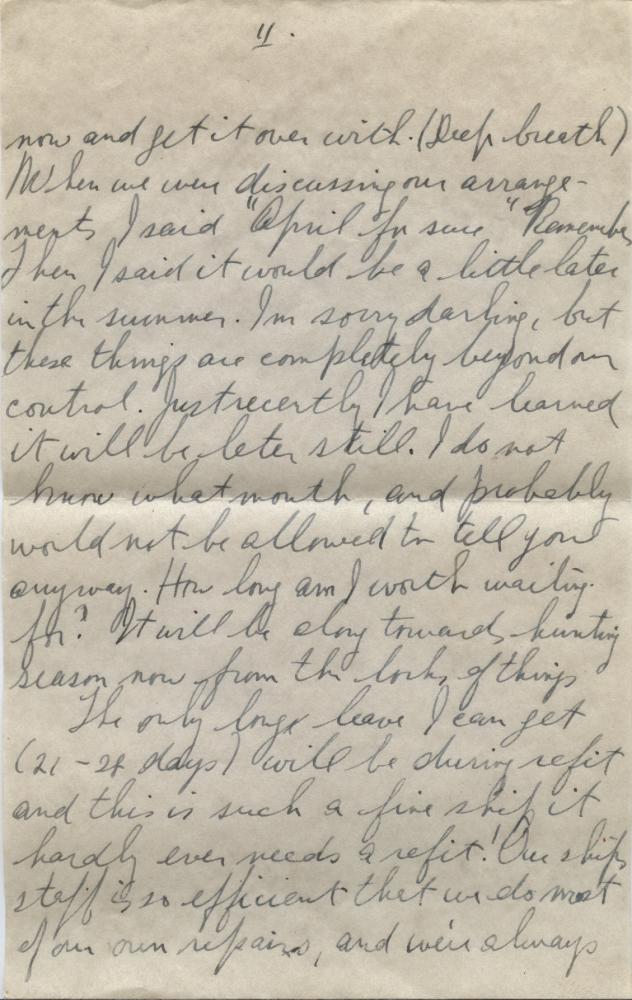 4.
now and get it over with. (Deep breath)
When we were discussing our arrange-
ments I said "April for sure" Remember
Then I said it would be a little later
in the summer. I'm sorry darling, but
these things are completely beyond our
control. Just recently I have learned
it will be later still. I do not
know what month, and probably
would not be allowed to tell you
anyway. How long am I worth waiting
for? It will be along towards hunting
season now from the looks of things
The only long leave I can get
(21-28 days) will be during refit
and this is such a fine ship it
hardly ever needs a refit! Our ships
staff is so efficient that we do most
of our own repairs, and we're always